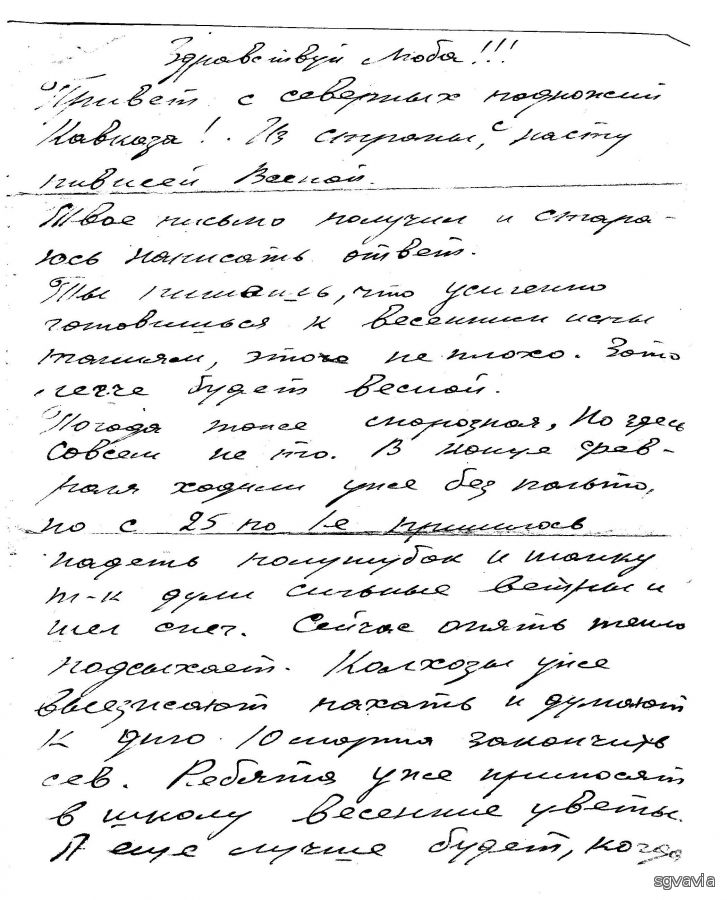 Здравствуй Люба!!!
Привет с северных подножий
Кавказа! Из страны, с насту
пившей Весной.
Твое письмо получил и стара-
юсь написать ответ.
Ты пишешь, что усиленно
готовишься к весенним испы
таниям, это не плохо. Зато
легче будет весной.
Погода тоже морозная, но здесь
совсем не то. В конце фев-
раля ходили уже без пальто,
но с 25 по 1-е пришлось
надеть полушубок и шапку
т-к дули сильные ветры и
шел снег. Сейчас опять тепло
подсыхает. Колхозы уже
выезжают пахать и думают
к дню 10 марта закончить
сев. Ребята уже приносят
в школу весенние цветы.
А еще лучше будет, когда
sgvavia